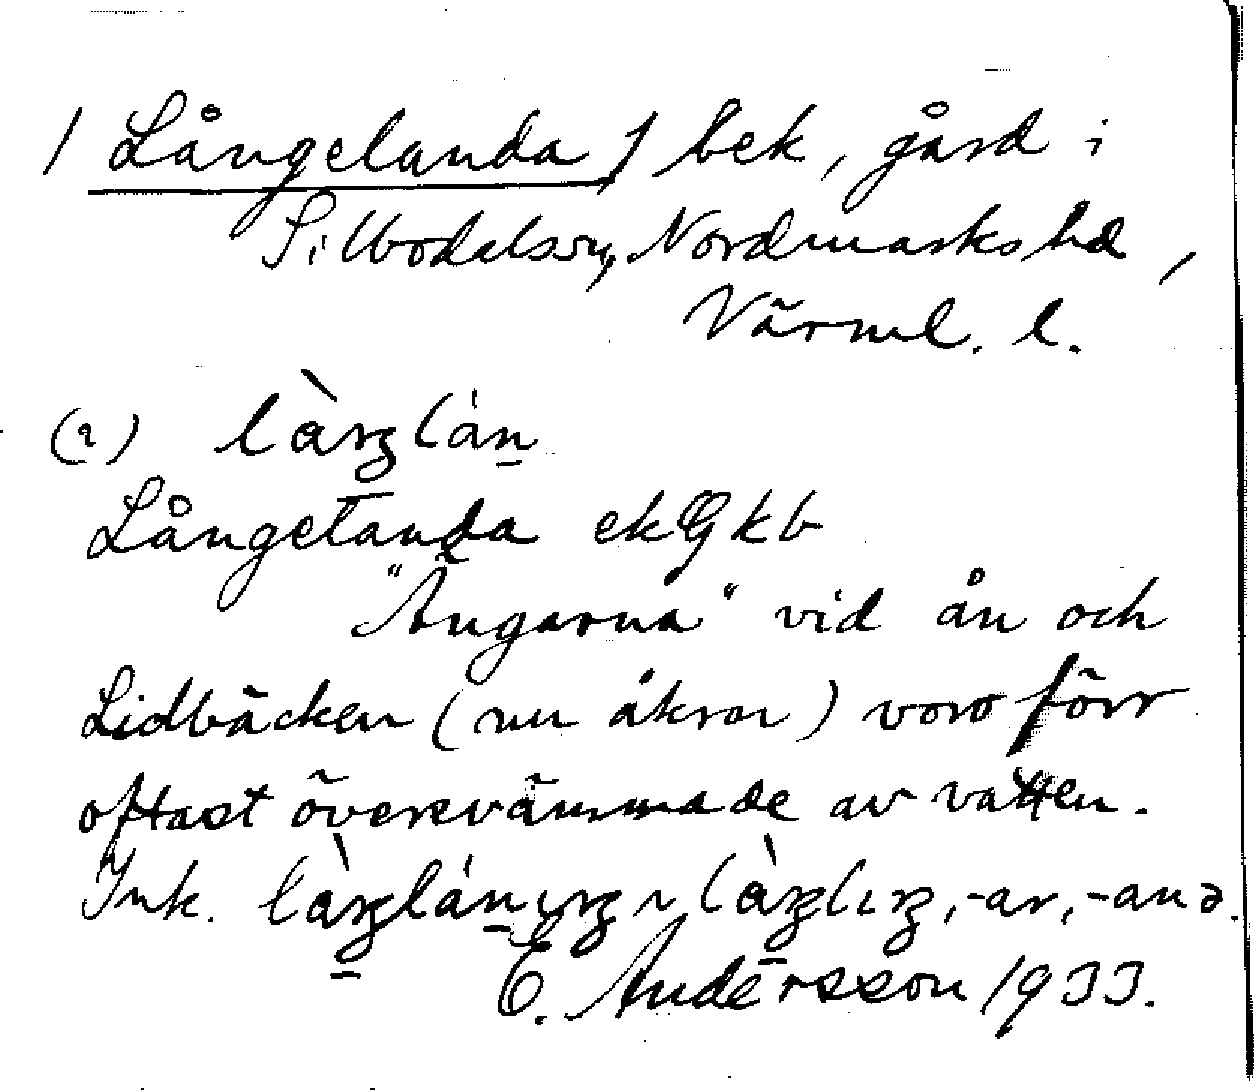 / Långelanda / bek, gård i
Silbodals sn, Nordmarks hd,
Värml. l.
(a) làŋlán̠
Långelanda ekGkb
"Ängarna" vid ån och
Lidbäcken (nu åkrar) voro förr
oftast översvämmade av vatten.
Ink. làŋlán̠ıŋ ~ làŋlıŋ, -ar, -anə.
E. Andersson 1933.